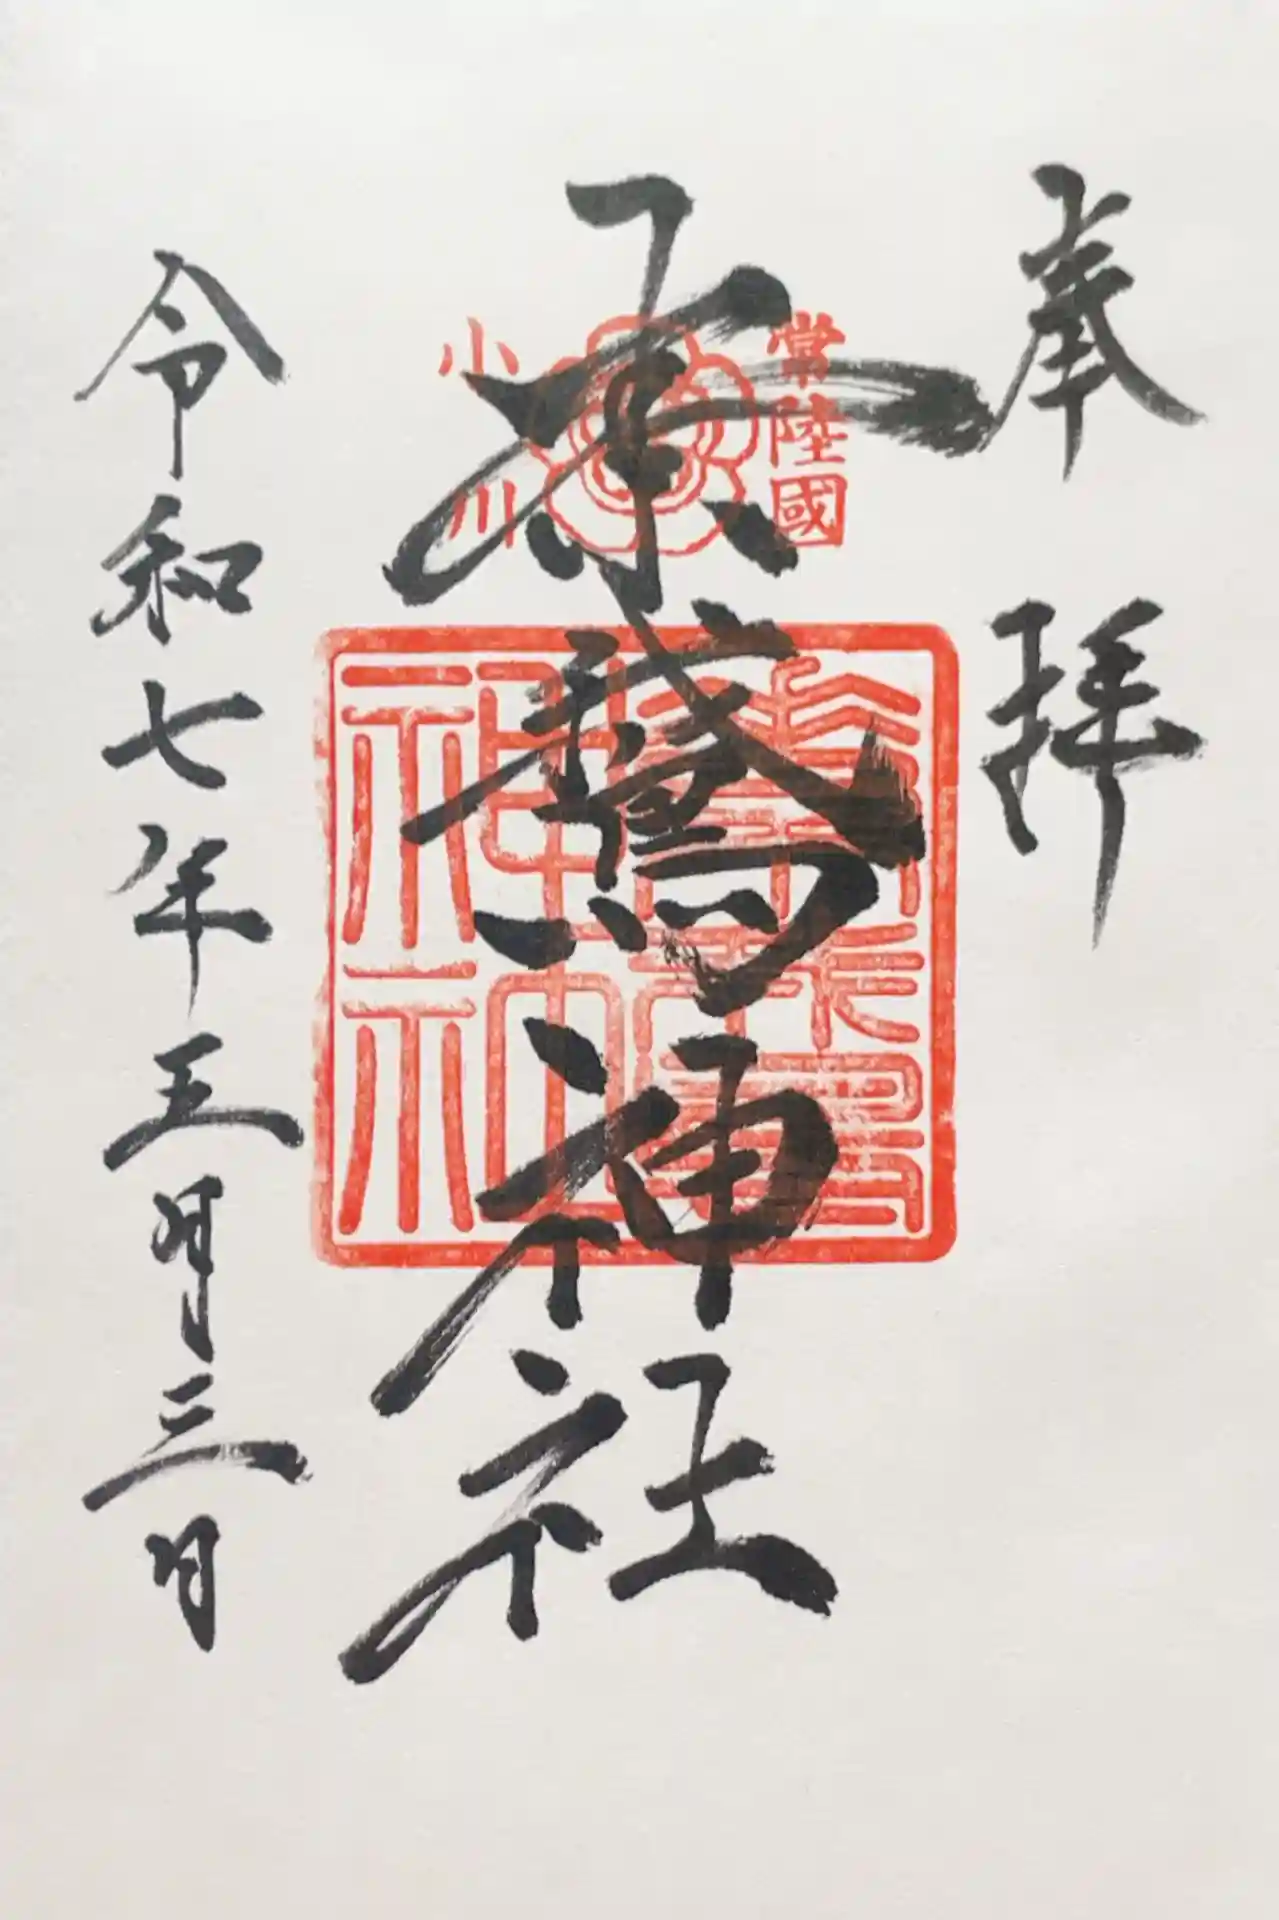 奉拝
常陸國
小川
素鵞神社
素鵞神社
令和七年五月三日